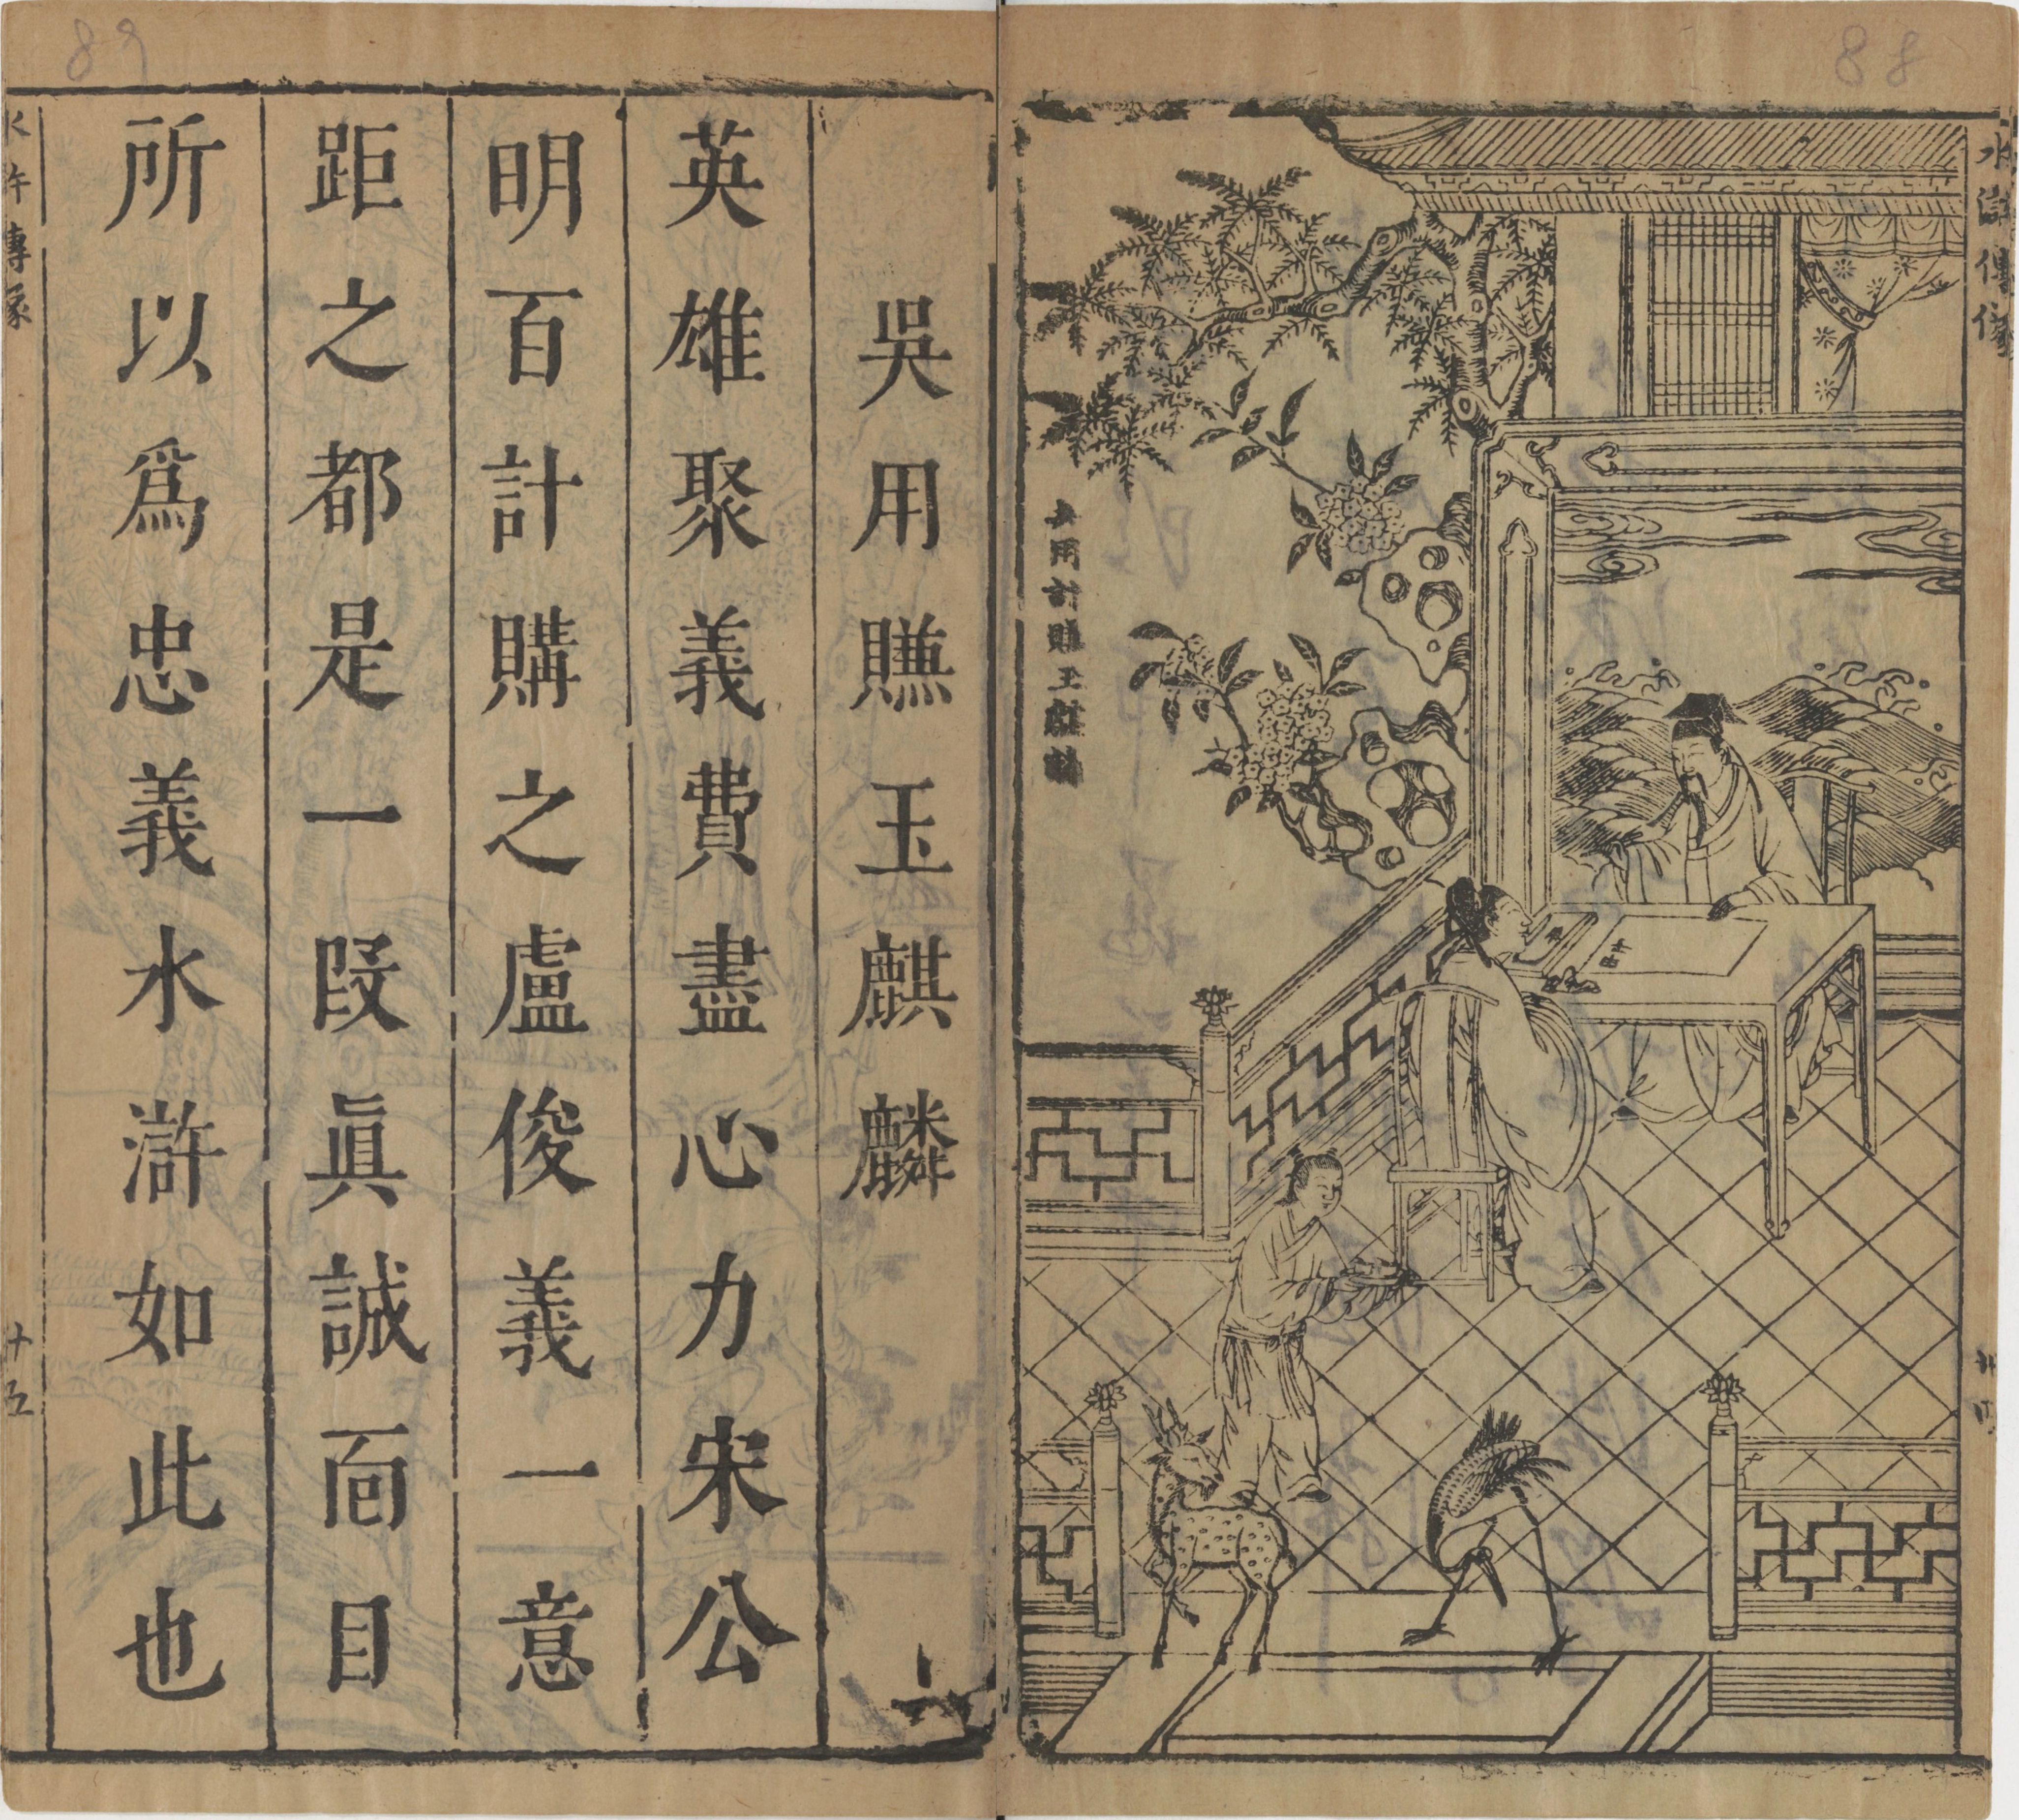 水滸傳像
吳用計賺玉麒麟
吳用賺玉麒麟
英雄聚義費盡心力宋公
明百計購之盧俊義一意
距之都是一段眞誠面目
所以爲忠義水滸如此也
水滸傳像
十五
88
89